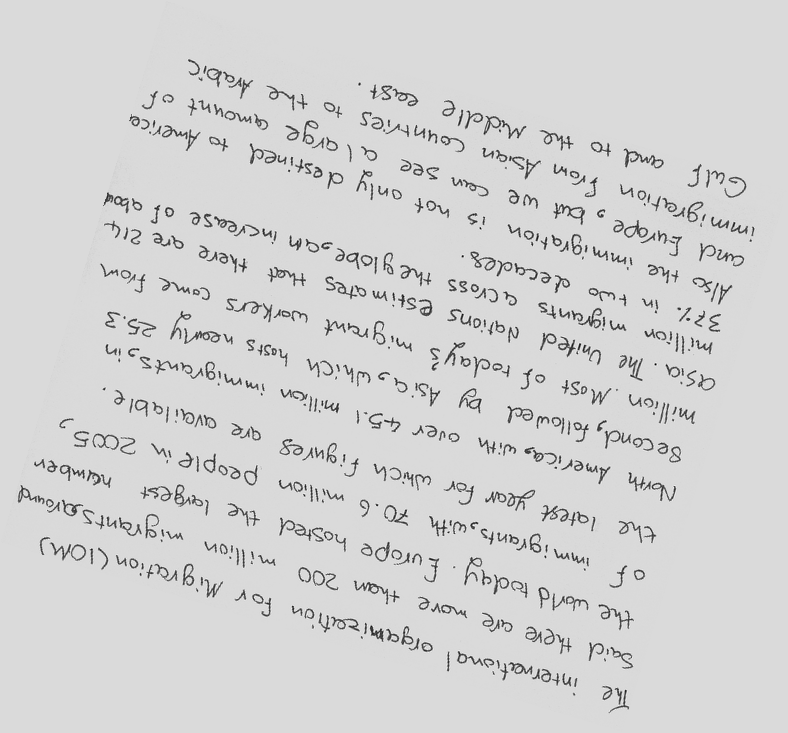 The international organization for Migration (IOM)
Said there are more than 200 million migrants around
the world today. Europe hosted the largest number
of immigrants, with 70.6 million people in 2005,
the latest year for which figures are available.
North America, with over 45.1 million immigrants, is
Second, followed by Asia, which hosts nearly 25.3
million. Most of today's migrant workers come from
asia. The United Nations estimates that there are 214
million migrants across the globe, an increase of about
37% in two decades.
Also the immigration is not only destined to America
and Europe, but we can see a large amount of
immigration from Asian countries to the Arabic
Gulf and to the Middle east.